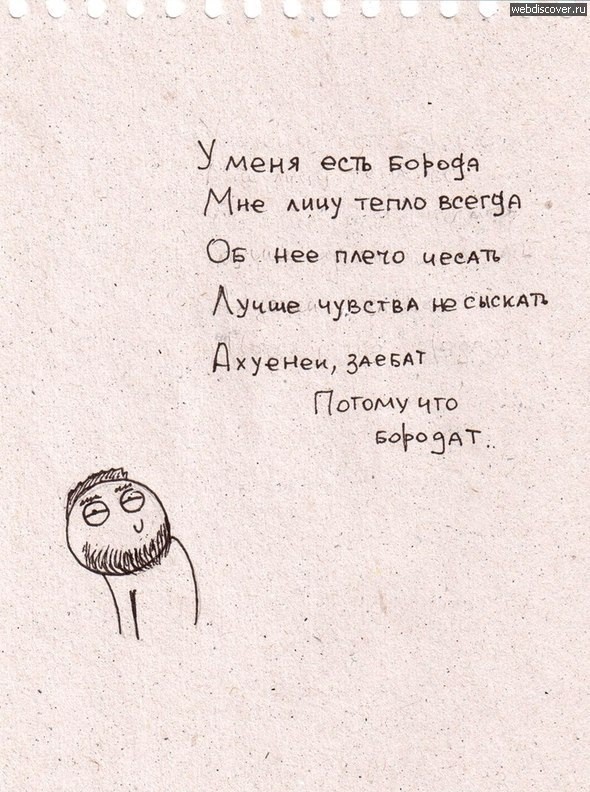 webdiscover.ru
У меня есть борода
Мне лицу тепло всегда
Об нее плечо чесать
Лучше чувства не сыскать
Ахуенен, заебат
Потому что
бородат..